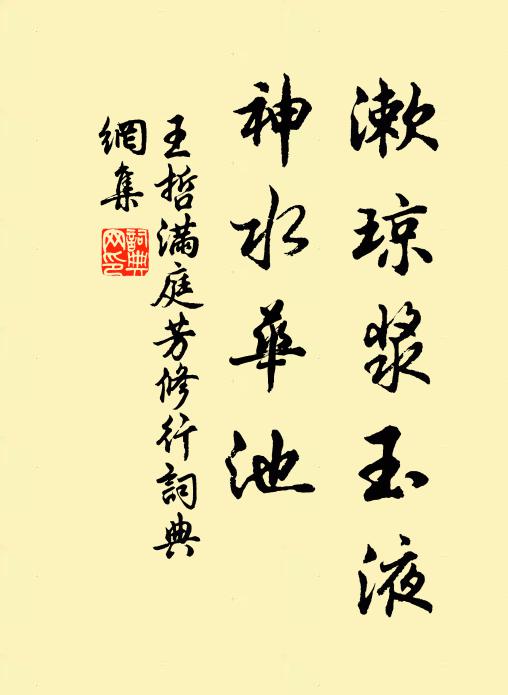 漱琼浆玉液
神水华池
王哲满庭芳修行詞典
網集
詞典
网印